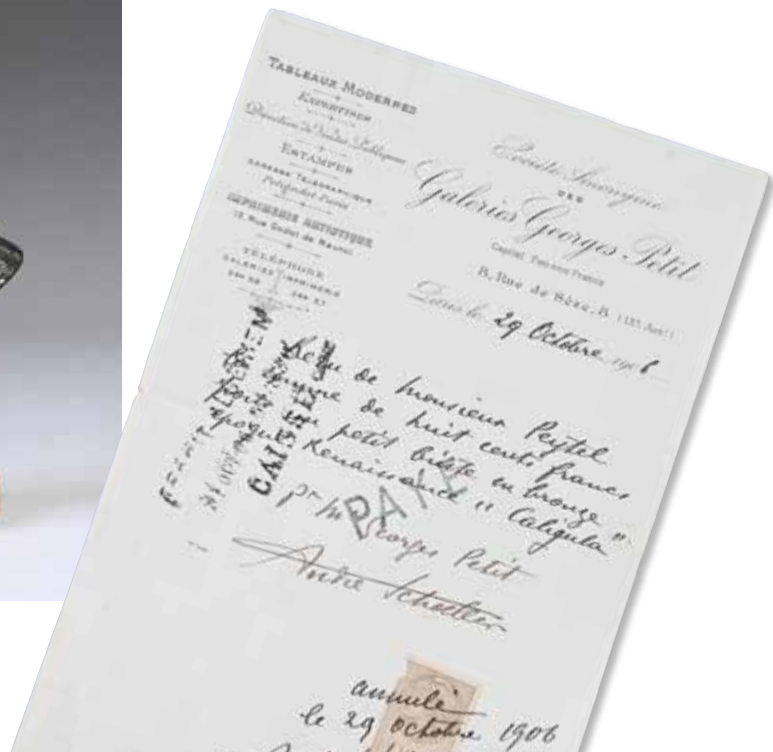 TABLEAUX MODERNES
EXPERTISES
Direction de Ventes Publiques
ESTAMPES
ADRESSE TELEGRAPHIQUE
Petitgodot Paris
IMPRIMERIE ARTISTIQUE
12, Rue Godot de Mauroi
TÉLÉPHONE
GALERIES IMPRIMERIE
Société Anonyme
DES
Galeries Georges Petit
8, Rue de Sèze, 8
Paris, le 29 Octobre 1906
Reçu de Monsieur Peytel
la somme de huit cents francs
pour un petit buste en bronze
époque Renaissance "Caligula"
pr M Georges Petit
André Schoeller
CAISSE
PAYÉ
annulé
le 29 octobre 1906